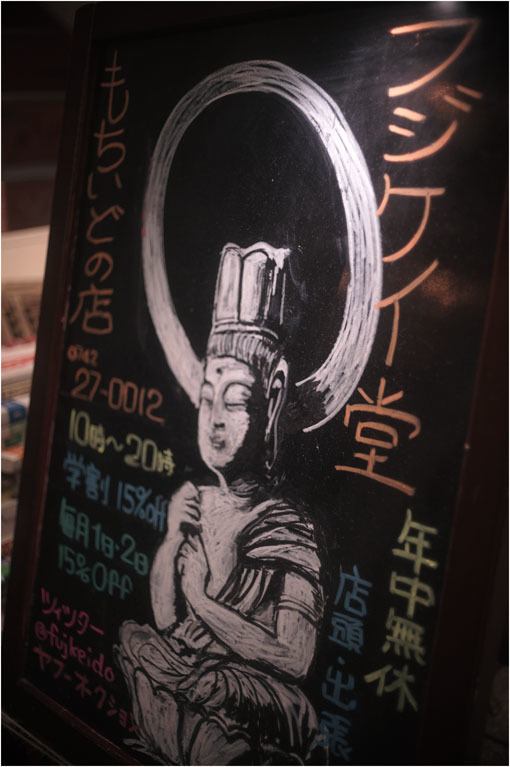 フジケイ堂
もちいどの店
0742
27-0012
10時～20時
学割 15%off
毎月1日・2日
15%off
ツイッター
@fujikeido
ヤフーオークション
年中無休
店頭・出張